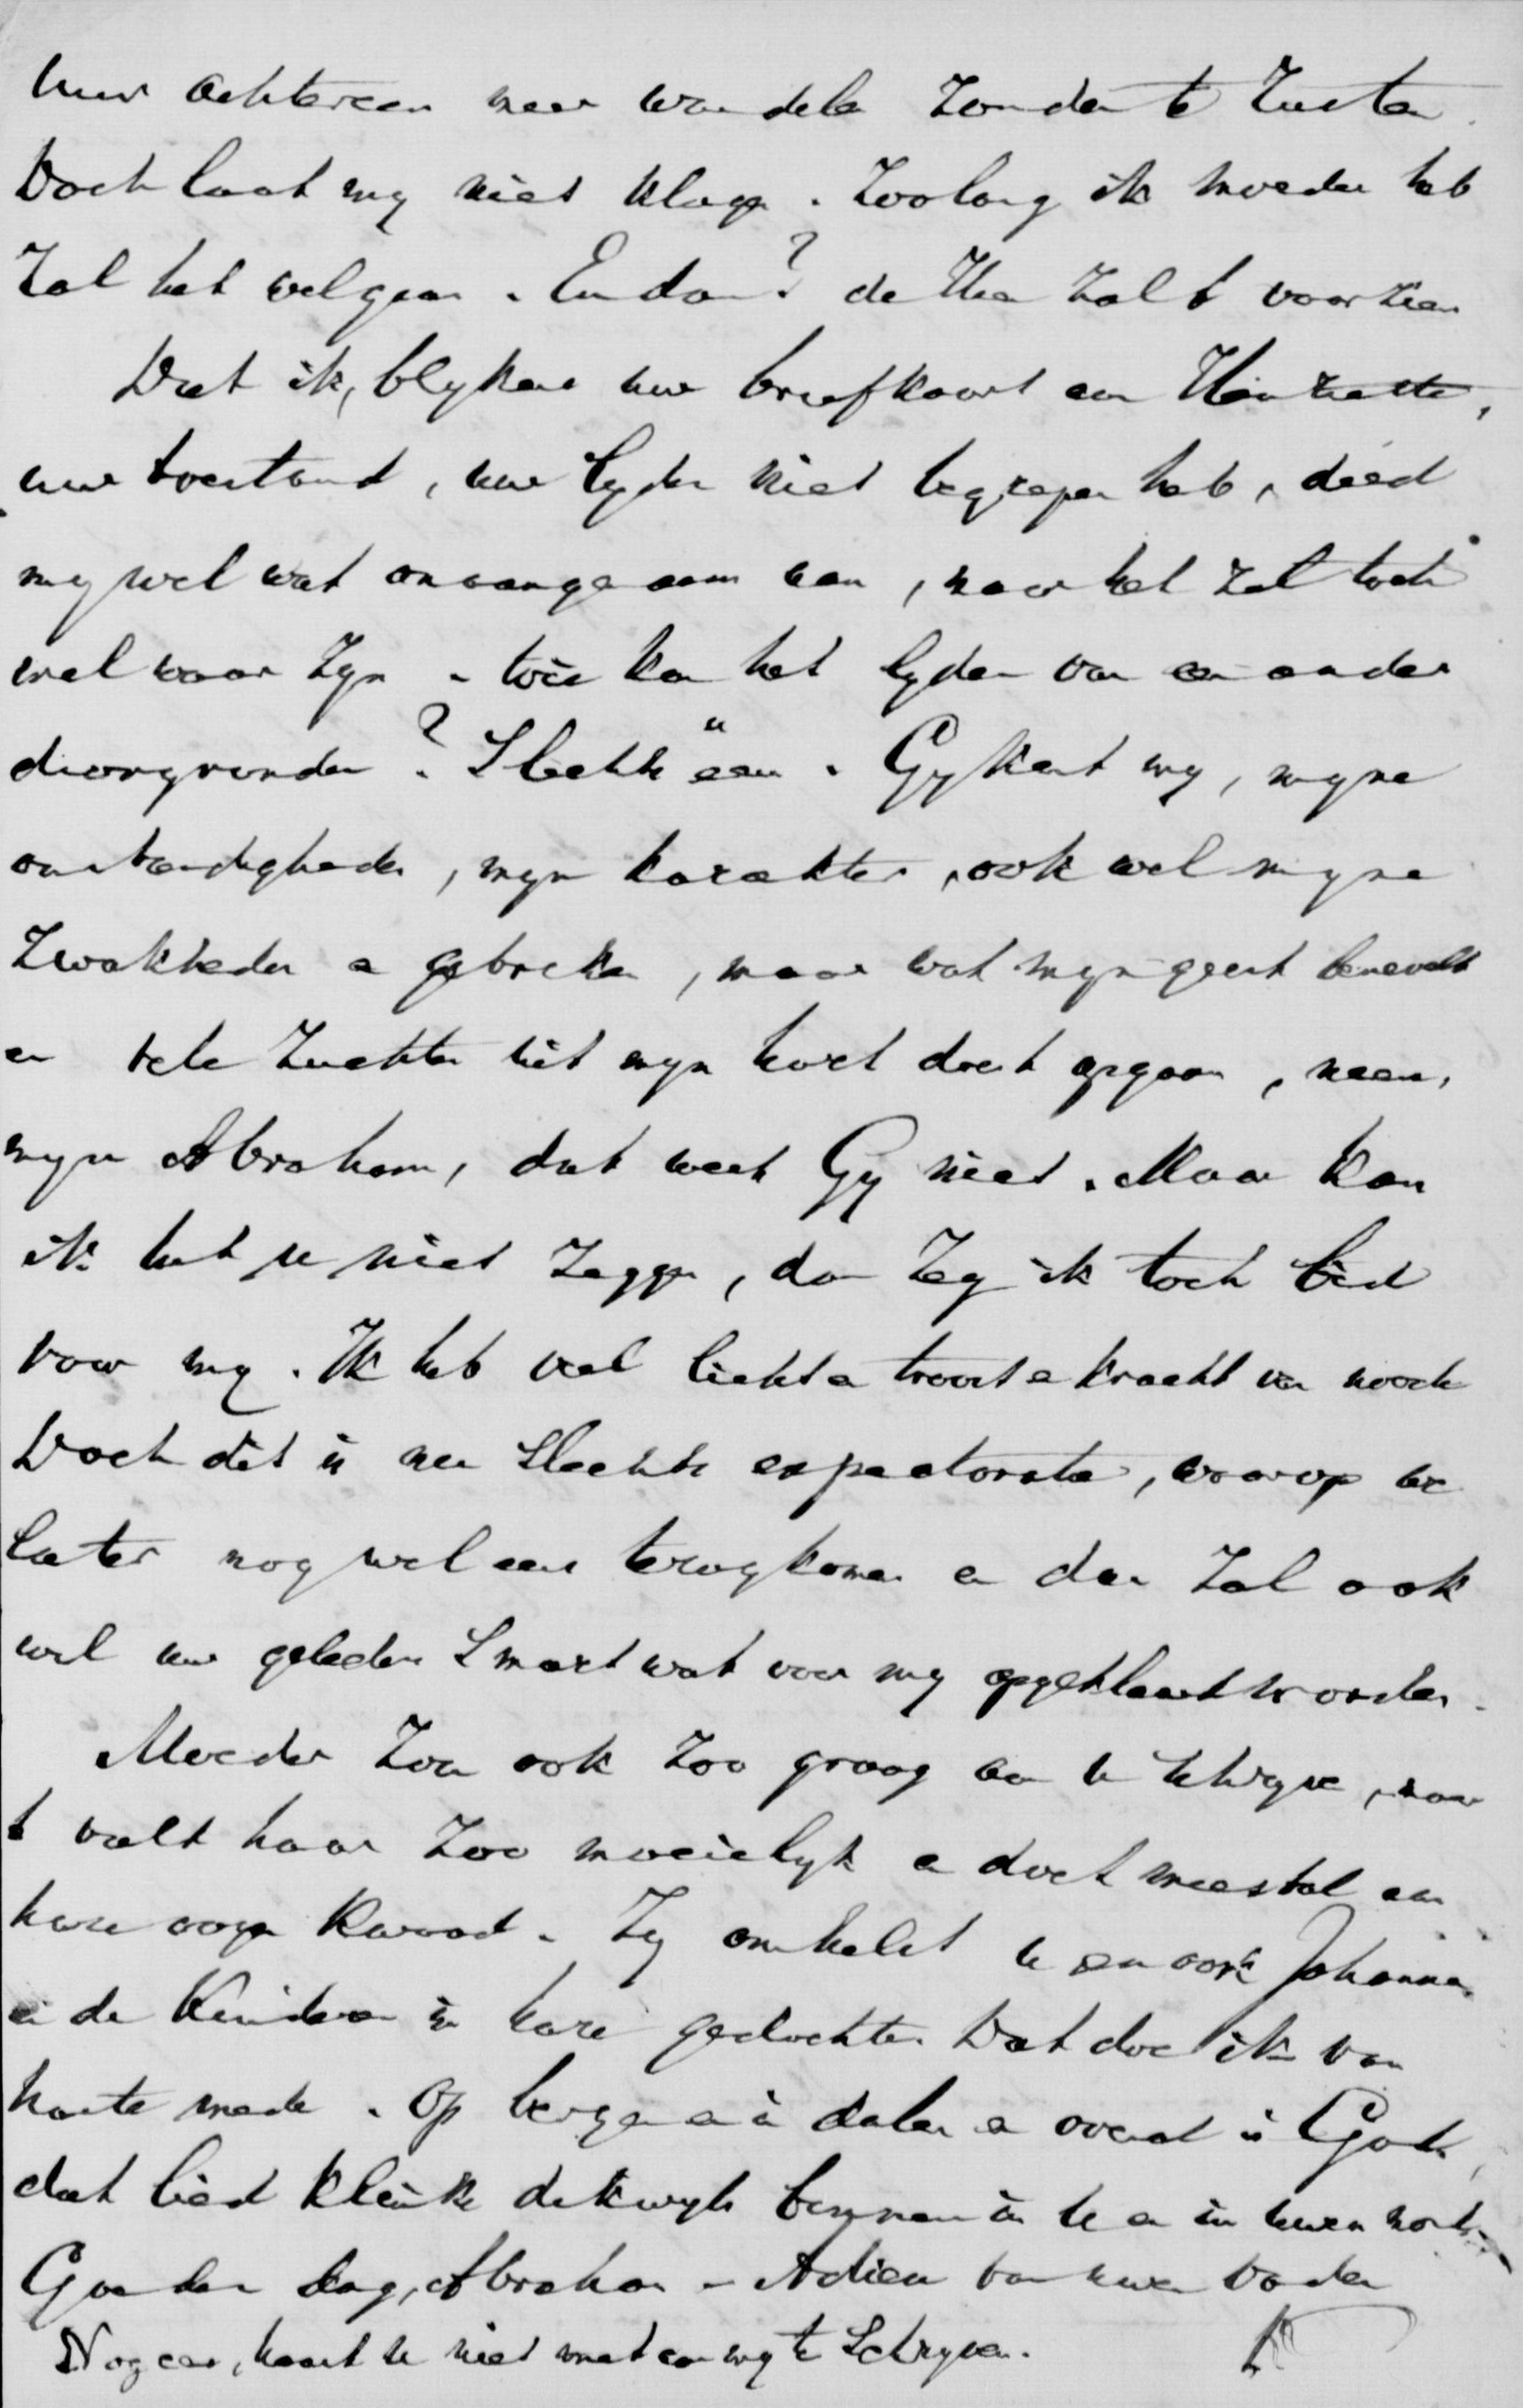 uur achtereen meer wandelen zonder te rusten.
Doch laat my niet klagen. Zoolang ik moeder heb
zal het wel gaan. En dan? de Heer zal 't voorzien
Dat ik, blykens uw briefkaart aan Henriette,
uw toestand, uw lyden niet begrepen heb, deed
my wel wat onaangenaam aan, maar het zal toch
wel waar zyn. Wie kan het lyden van een ander
doorgronden? Slechts een. Gy kent my, myne
omstandigheden, myn karakter, ook wel myne
zwakheden en gebreken, maar wat myn geest benevelt
en vele zuchten uit myn hart doet opgaan, neen,
myn Abraham, dat weet Gy niet. Maar kan
ik het u niet zeggen, dan zeg ik toch bid
voor my. Ik heb veel licht en troost en kracht van noode
Doch dit is nu slechts expectoratie, waarop we
later nog wel eens terugkomen en dan zal ook
wel uw geleden smart wat voor my opgeklaard worden.
Moeder zou ook zoo graag aan u schryven, maar
't valt haar zoo moeielyk en doet meestal aan
hare oogen kwaad. Zy omhelst u en ook Johanna
en de kinderen in hare gedachten Dat doe ik van
harte mede. Op bergen en in dalen en overal is God,
dat lied klinke dikwyls binnen in u en in uwen mond
Goeden dag, Abraham - Adieu van uwen Vader
Nog eens, haast u niet met aan my te schryven.